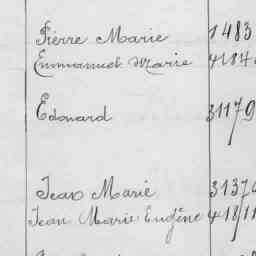 Pierre Marie 1483
Emmanuel Marie
Edouard 31179
Jean Marie 3137
Jean Marie Eugène 41811